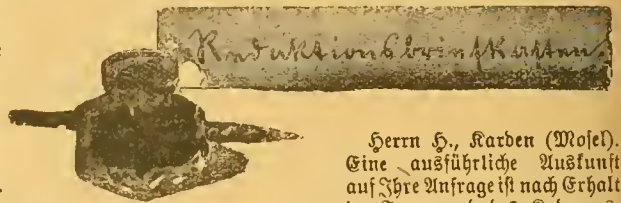 Redaktionsbriefkasten
Herrn H., Karden (Mosel).
Eine ausführliche Auskunft
auf Ihre Anfrage ist nach Erhalt